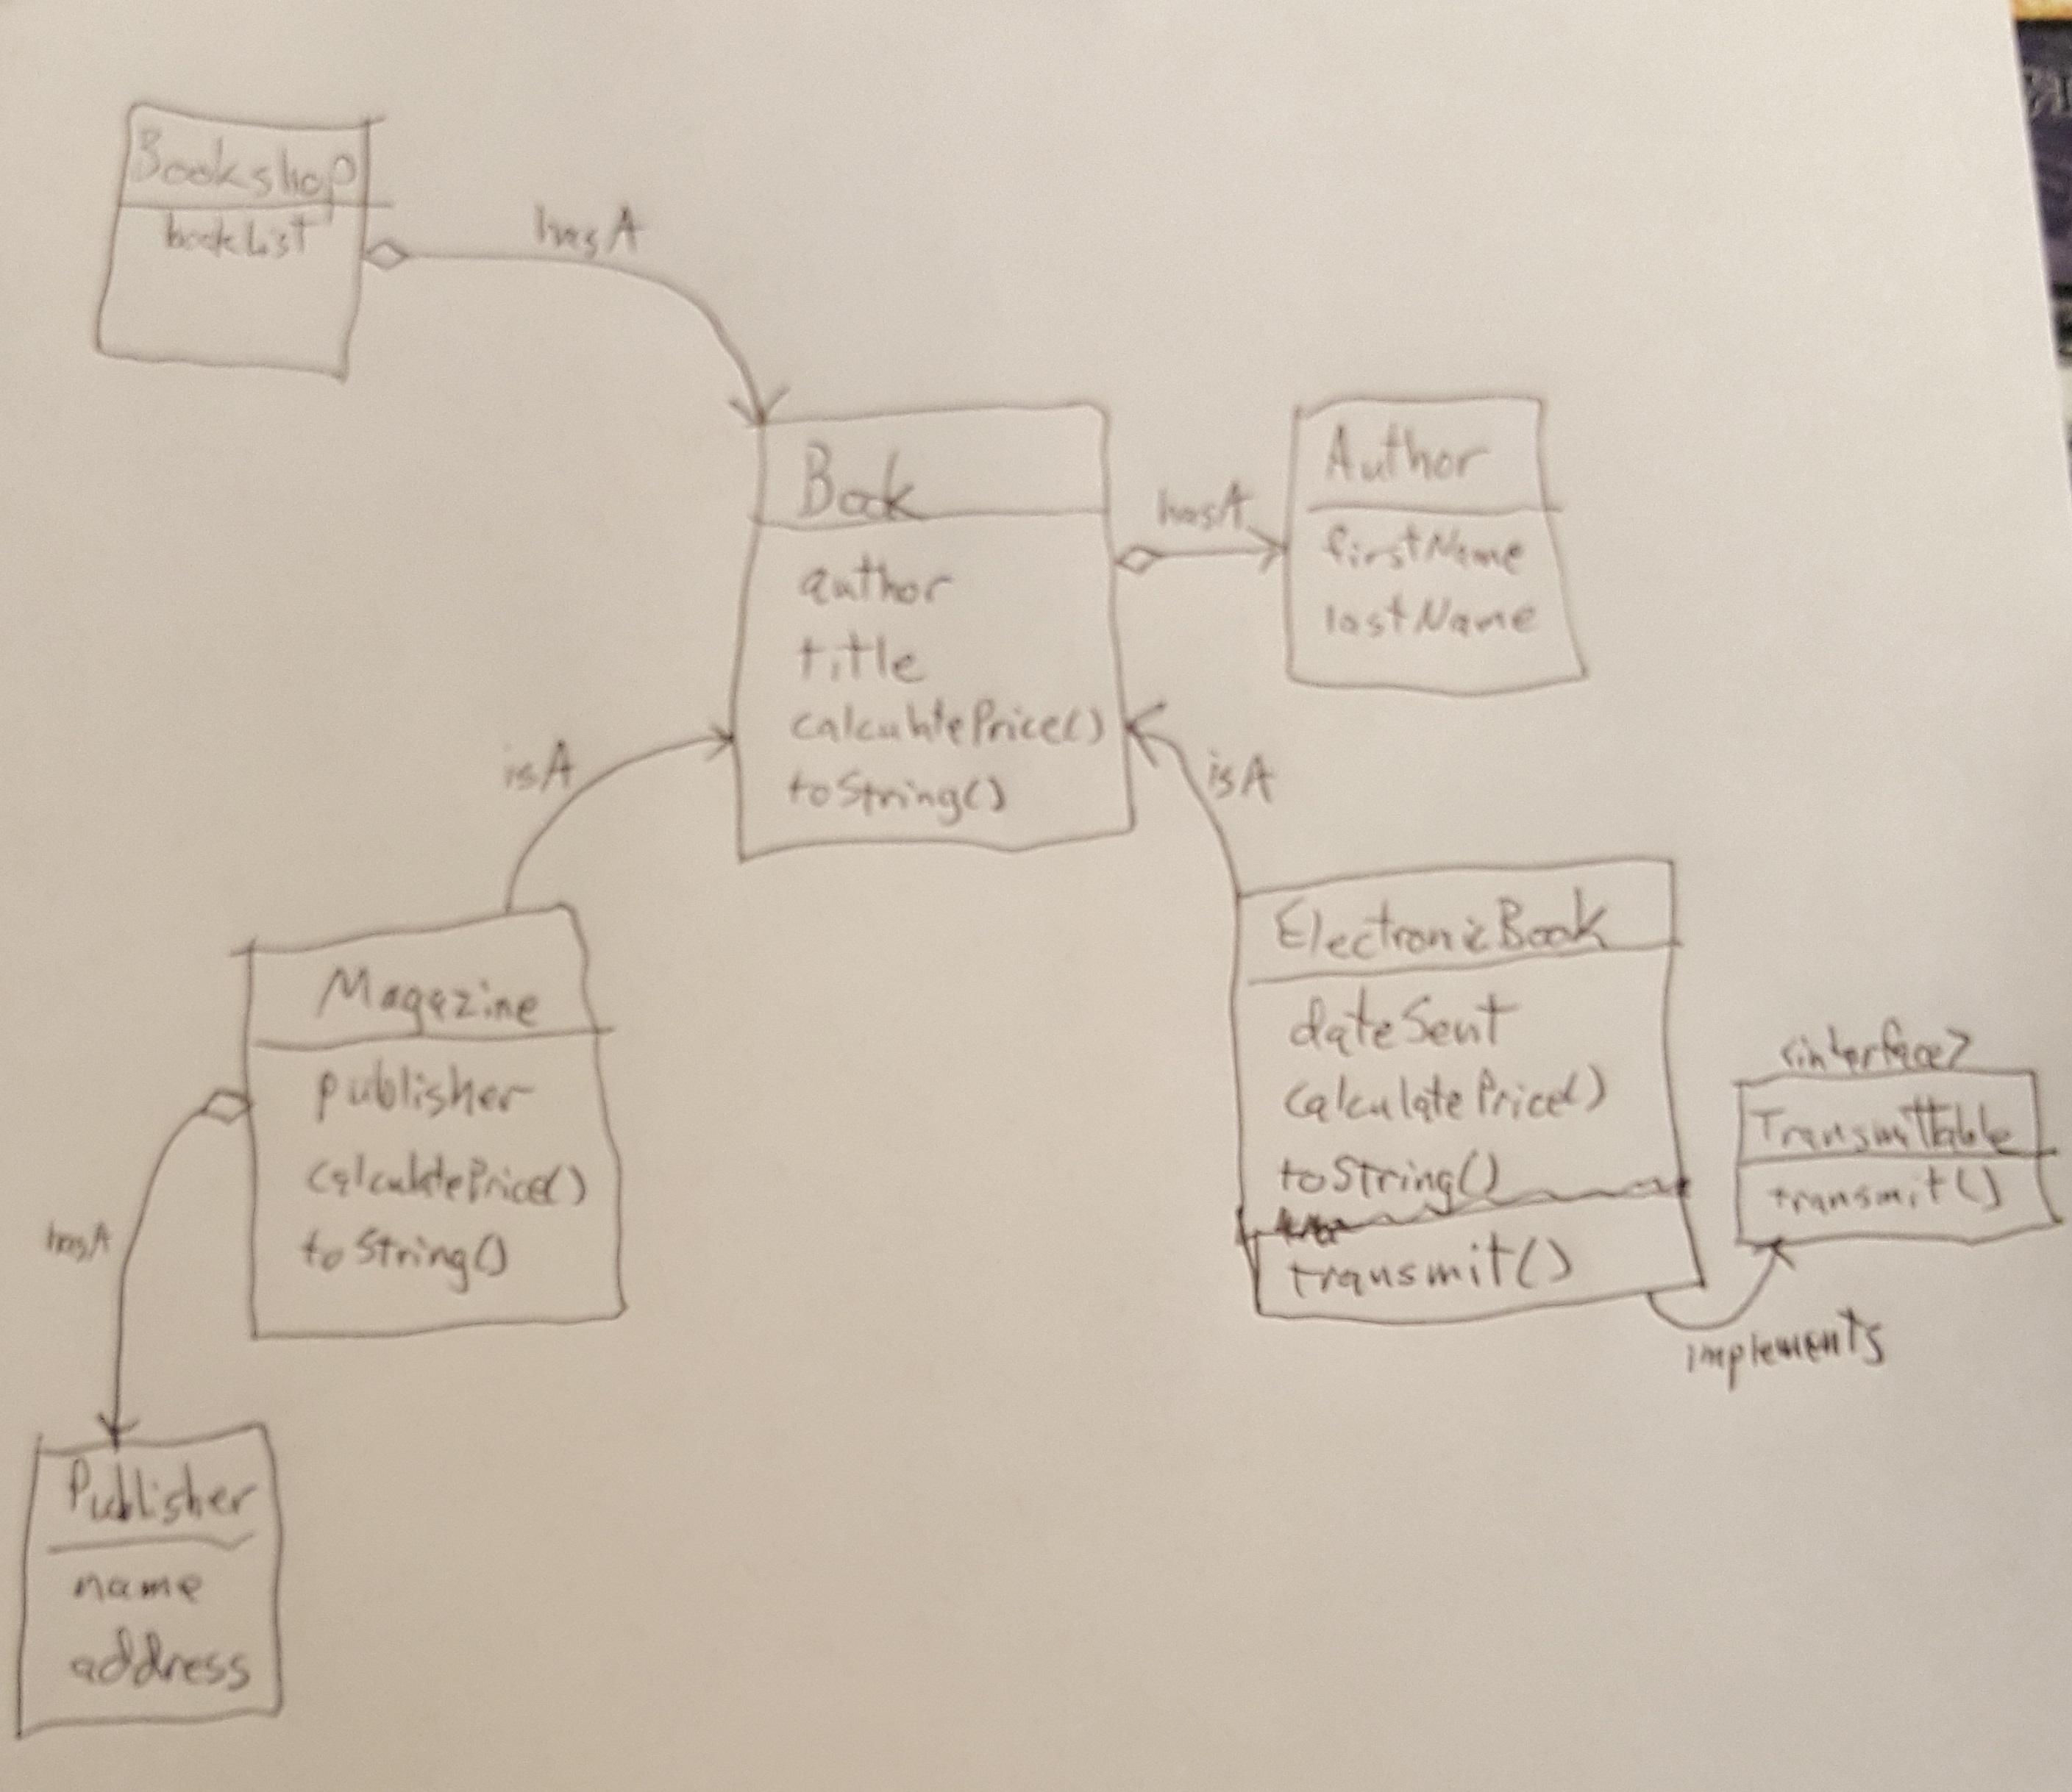 Bookshop
bookList
hasA
Book
author
title
calculatePrice()
toString()
hasA
Author
firstName
lastName
isA
isA
Magazine
publisher
calculatePrice()
toString()
hasA
Publisher
name
address
ElectronicBook
dateSent
calculatePrice()
toString()
transmit()
<interface>
Transmittable
transmit()
implements